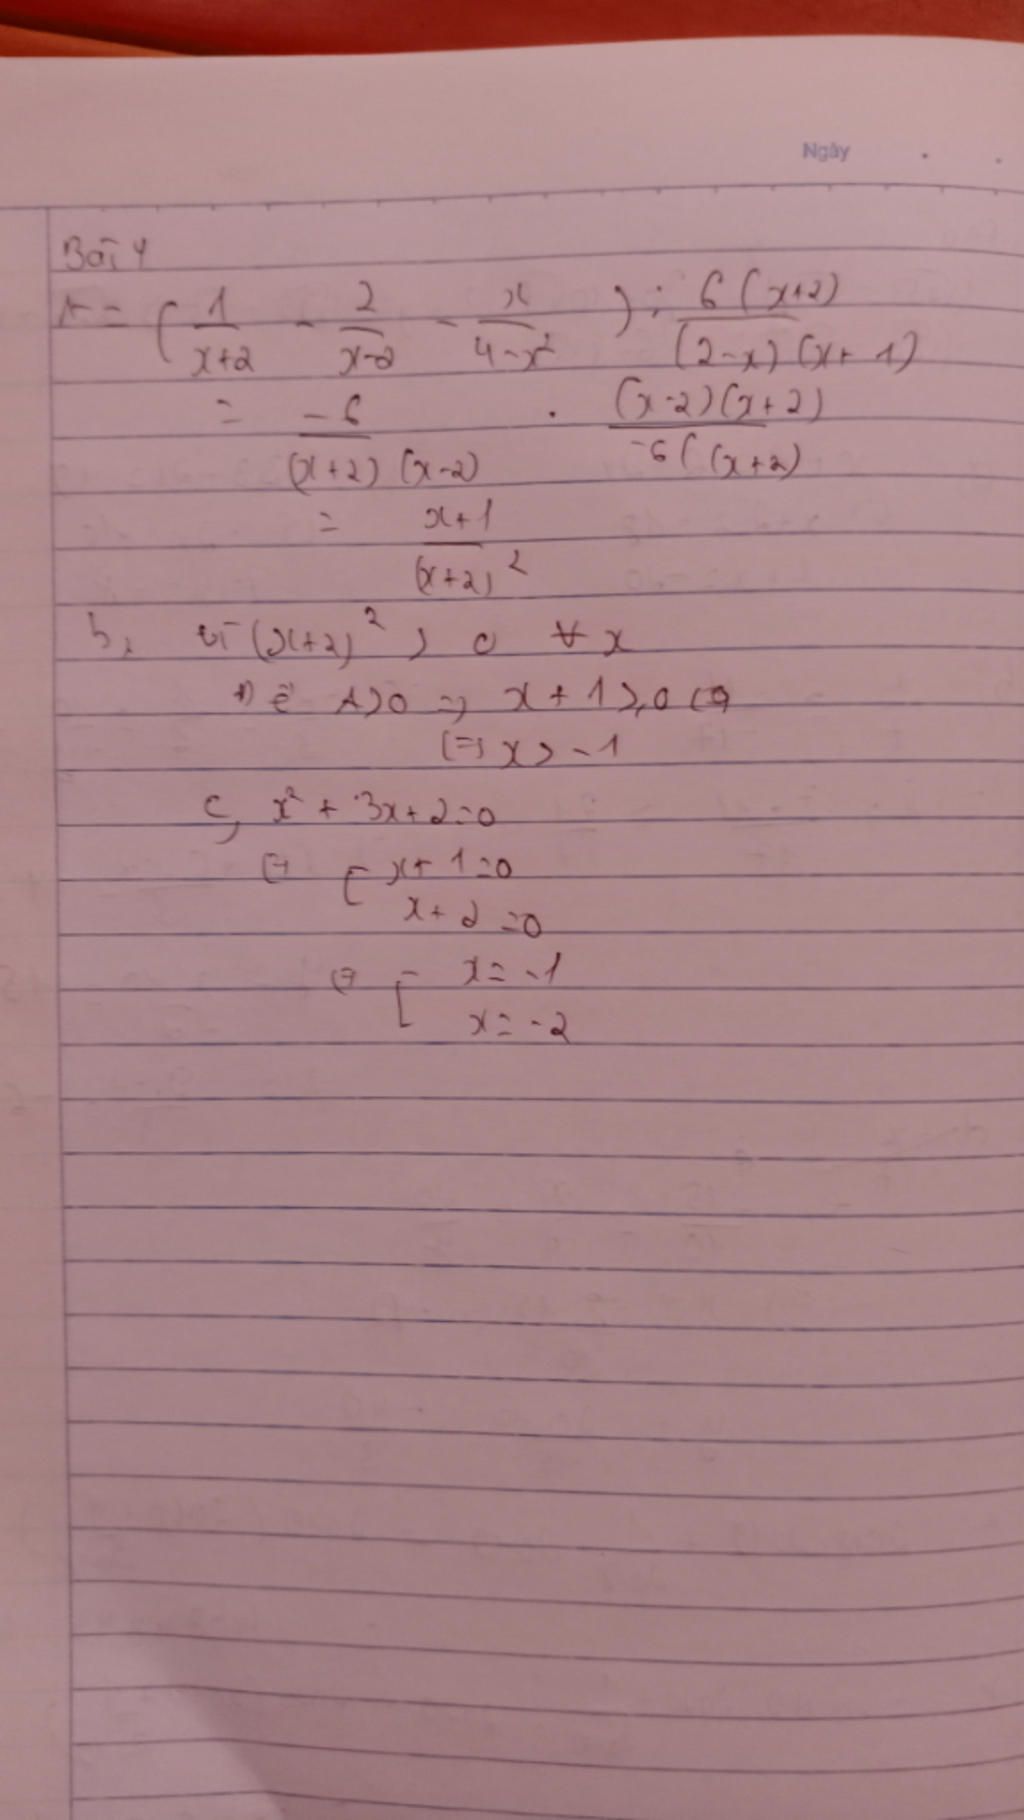 Ngày
Bài 4
A = ( 1/(x+2) - 2/(x-2) - x/(4-x²) ) : 6(x+2)/((2-x)(x+1))
= -6/((x+2)(x-2)) . (x-2)(x+2)/(-6((x+2))
= (x+1)/(x+2)²
b, vì (x+2)² > 0 ∀ x
Để A>0 => x+1>0 <=>
<=> x > -1
c, x² + 3x+2=0
<=> [ x+1=0
x+2=0
<=> [ x=-1
x=-2